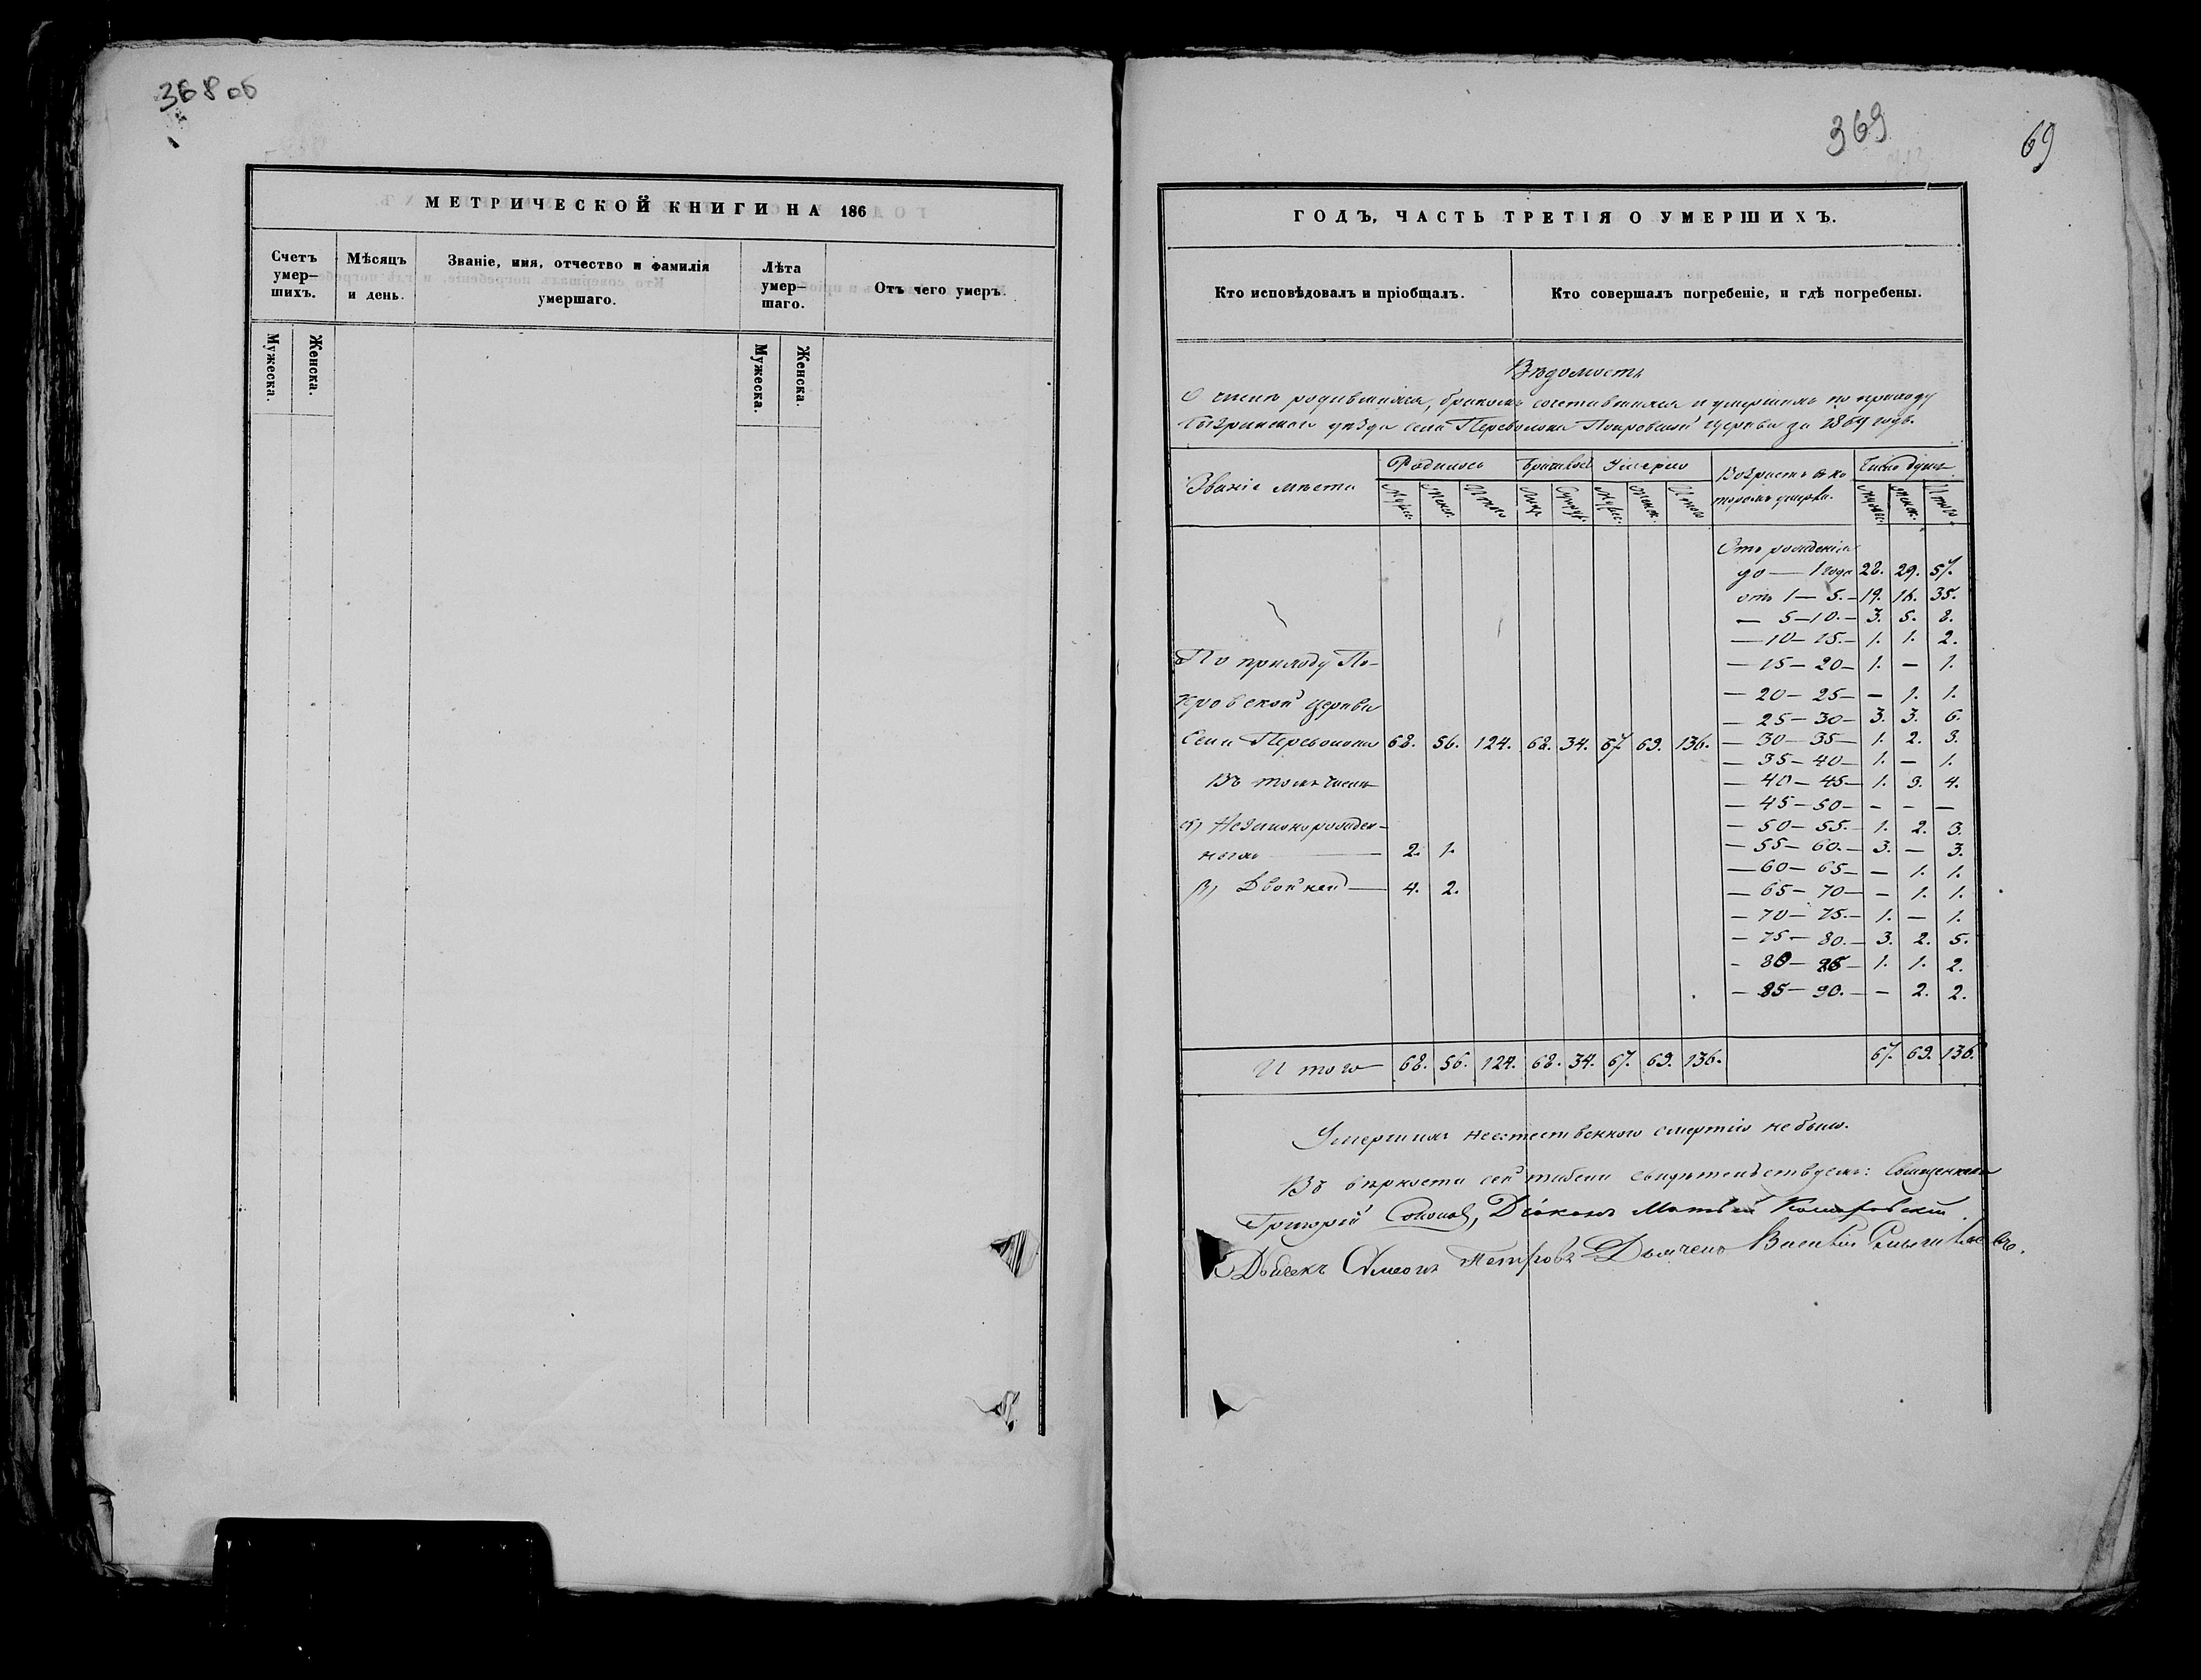 368 об
МЕТРИЧЕСКОЙ КНИГИ НА 186
Счетъ умер–шихъ.
Мѣсяцъ и день.
Званіе, имя, отчество и фамилія умершаго.
Лѣта умер–шаго.
Отъ чего умеръ.
Мужеска.
Женска.
Мужеска.
Женска.
369
69
ГОДЪ, ЧАСТЬ ТРЕТІЯ О УМЕРШИХЪ.
Кто исповѣдовалъ и пріобщалъ.
Кто совершалъ погребеніе, и гдѣ погребены.
Вѣдомость
О числѣ родившихся, бракомъ сочетавшихся и умершихъ по приходу
уѣзда села Переволока Покровской церкви за 1864 годъ.
Званіе мѣста
Родилось
Умерло
Возрастъ въ ко
торомъ умерли.
Число душъ
Мужес. Женск. Итого
Мужес. Женск. Итого
Мужес. Женск. Итого
Отъ рожденія
до — 1 года 28. 29. 57.
отъ 1 — 5. — 19. 16. 35.
— 5 — 10. — 3. 5. 8.
— 10 — 15. — 1. 1. 2.
По приходу По-
— 15 — 20 — 1. — 1.
кровской церкви
— 20 — 25 — — 1. 1.
— 25 — 30 — 3. 3. 6.
Села Переволока 68. 56. 124. 68. 34. 67. 69. 136. — 30 — 35 — 1. 2. 3.
— 35 — 40 — 1. — 1.
Въ томъ числѣ
— 40 — 45 — 1. 3. 4.
— 45 — 50 — — — —
а) Незаконорожден-
— 50 — 55. — 1. 2. 3.
ныхъ — 2. 1.
— 55 — 60. — 3. — 3.
— 60 — 65 — — 1. 1.
Двойней — 4. 2.
— 65 — 70 — — 1. 1.
— 70 — 75. — 1. — 1.
— 75 — 80. — 3. 2. 5.
— 80 — 85 — 1. 1. 2.
— 85 — 90. — — 2. 2.
Итого 68. 56. 124. 68. 34. 67. 69. 136. 67. 69. 136.
Умершихъ неестественною смертію не было.
Въ вѣрности сей табели свидѣтельствуемъ: Священникъ
Григорій Діаконъ Матвій Комаровскій.
Дьячекъ Симеонъ Петровъ